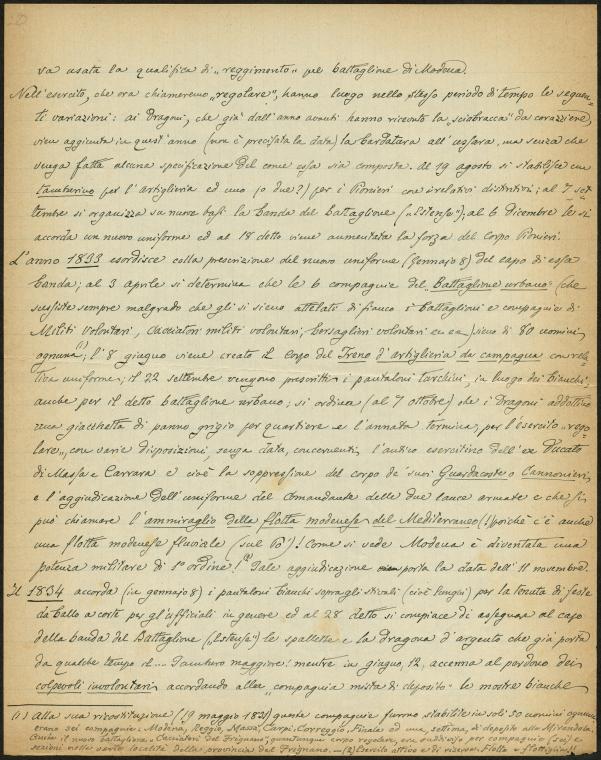 va usata la qualifica di „reggimento" pel battaglione di Modena.
Nell'esercito, che ora chiameremo „regolare", hanno luogo nello stesso periodo di tempo le seguen-
ti variazioni: ai Dragoni, che già dall'anno avanti hanno ricevuto la sciabracca "da corazziere,
vien aggiunta in quest'anno (non è precisata la data) la bardatura all'ussara, ma senza che
venga fatta alcuna specificazione del come essa sia composta. Al 19 agosto si stabilisce un
tamburino per l'artiglieria ed uno (o due?) per i Pionieri con i relativi distintivi; al 7 set
tembre si organizza su nuove basi la banda del battaglione („Estense"); al 6 Dicembre le si
accorda un nuovo uniforme ed al 18 detto viene aumentata la forza del Corpo Pionieri.
L'anno 1833 esordisce colla prescrizione del nuovo uniforme (Gennajo 8) del capo di essa
banda; al 3 aprile si determina che le 6 compagnie del „Battaglione urbano" (che
sussiste sempre malgrado che gli si sieno attelati di fianco i battaglioni e compagnie di
Militi Volontari, Cacciatori militi volontari, bersaglieri volontari ecc ecc) sieno di 80 uomini
ognuna (1); l'8 giugno viene creato il corpo del Treno d'artiglieria da campagna con rela-
tiva uniforme; il 22 settembre vengono prescritti i pantaloni turchini, in luogo dei bianchi,
anche per il detto battaglione urbano; si ordina (al 7 ottobre) che i Dragoni addottino
una giacchetta di panno grigio per quartiere e l'annata termina, per l'esercito „rego-
lare", con varie disposizioni senza data, concernenti l'antico esercitino dell'ex Ducato
di Massa e Carrara e cioè la soppressione del corpo de' suoi Guardacoste o Cannonieri
e l'aggiudicazione dell'uniforme del Comandante delle due lance armate e che si
può chiamare l'ammiraglio della flotta modenese del Mediterraneo (!) poichè c'è anche
una flotta modenese fluviale (sul Po)! Come si vede Modena è diventata una
potenza militare di 1° ordine! (2) Tale aggiudicazione porta la data dell'11 novembre.
Il 1834 accorda (in gennajo 8) i pantaloni bianchi sopra gli stivali (cioè lunghi) per la tenuta di feste
da ballo a corte per gli ufficiali in genere ed al 28 detto si compiace di assegnar al capo
della banda del Battaglione („Estense") le spallette e la Dragona d'argento che già porta
da qualche tempo il.... Tamburo maggiore! mentre in giugno, 12, accenna al perdono dei
colpevoli involontari accordando alla compagnia mista di deposito le mostre bianche
(1) Alla sua ricostituzione (19 maggio 1831) queste compagnie furono stabilite in soli 50 uomini ognuna
erano sei compagnie: Modena, Reggio, Massa, Carpi, Correggio, Finale ed una, settima, di deposito alla Mirandola.
il nuovo battaglione „Cacciatori del Frignano", quantunque corpo regolare, era suddiviso per compagnie (sei) e
sezioni nelle varie località della provincia del Frignano. — (2) Esercito attivo e di riserva, Flotta e flottiglia!!